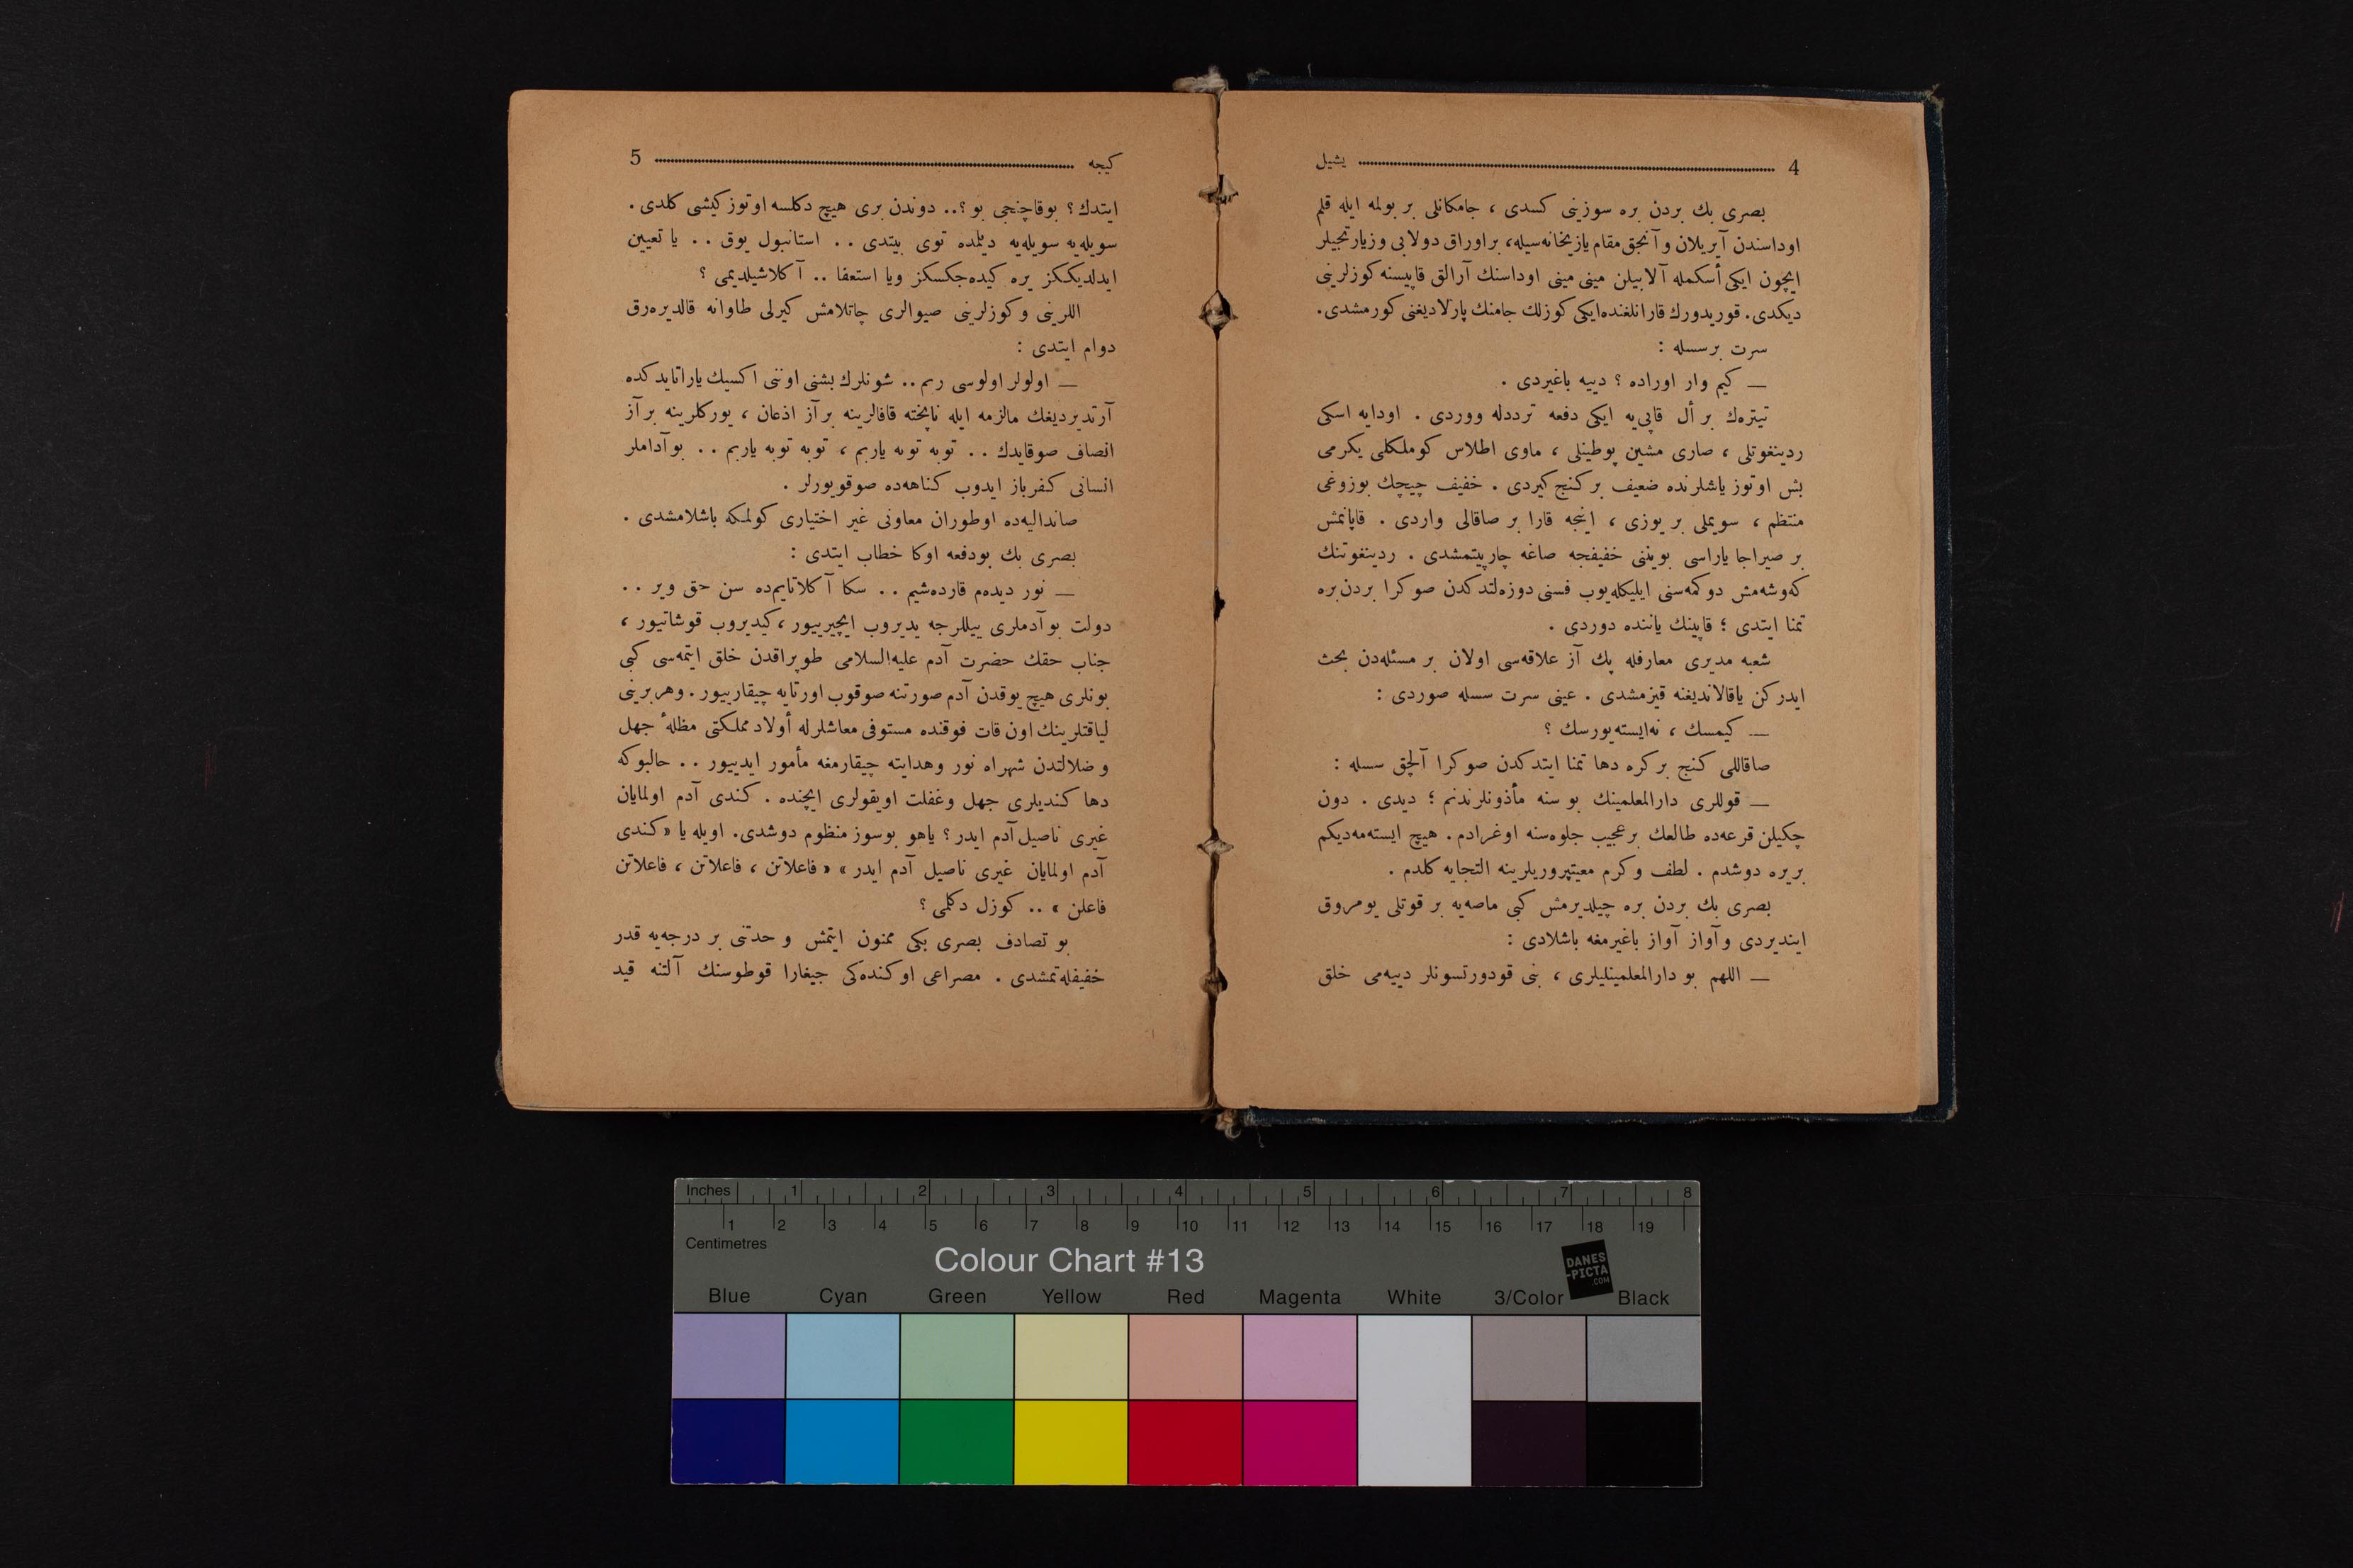 4 يشيل
بصرى بك بردن بره سوزينى كسدى ، جامكانلى بر بولمه ايله قلم
اوداسندن آيريلان و آنجق مقام يازيخانه‌سيله، بر اوراق دولابى و زيارتجيلر
ايچون ايكى أسكمله آلابيلن مينى مينى اوداسنك آرالق قاپيسنه كوزلرينى
ديكدى. قوريدورك قارانلغنده ايكى كوزلك جامنك پارلاديغنى كورمشدى.
سرت برسسله :
— كيم وار اوراده ؟ دييه باغيردى .
تيتره‌ك بر أل قاپى‌يه ايكى دفعه ترددله ووردى . اودايه اسكى
ردينغوتلى ، صارى مشين پوطينلى ، ماوى اطلاس كوملكلى يكرمى
بش اوتوز ياشلرنده ضعيف بر كنج كيردى . خفيف چيچك بوزوغى
منتظم ، سويملى بر يوزى ، اينجه قارا بر صاقالى واردى . قاپانمش
بر صيراجا ياراسى بويننى خفيفجه صاغه چارپيتمشدى . ردينغوتنك
كه‌وشه‌مش دوكمه‌سنى ايليكله‌يوب فسنى دوزه‌لتدكدن صوكرا بردن بره
تمنا ايتدى ؛ قاپينك ياننده دوردى .
شعبه مديرى معارفله پك آز علاقه‌سى اولان بر مسئله‌دن بحث
ايدركن ياقالانديغنه قيزمشدى . عينى سرت سسله صوردى :
— كيمسك ، نه‌ايسته‌يورسك ؟
صاقاللى كنج بركره دها تمنا ايتدكدن صوكرا آلچق سسله :
— قوللرى دارالمعلمينك بو سنه مأذونلرندنم ؛ ديدى . دون
چكيلن قرعه‌ده طالعك بر عجيب جلوه‌سنه اوغرادم . هيچ ايسته‌مه‌ديكم
بريره دوشدم . لطف و كرم معيتپروريلرينه التجايه كلدم .
بصرى بك بردن بره چيلديرمش كبى ماصه‌يه بر قوتلى يومروق
اينديردى و آواز آواز باغيرمغه باشلادى :
— اللهم بو دارالمعلمينليلرى ، بنى قودورتسونلر دييه‌مى خلق
كيجه 5
ايتدك ؟ بوقاچنجى بو ؟.. دوندن برى هيچ دكلسه اوتوز كيشى كلدى .
سويله‌يه سويله‌يه ديلمده توى بيتدى .. استانبول يوق .. يا تعيين
ايدلديككز يره كيده‌جكسكز ويا استعفا .. آكلاشيلديمى ؟
اللرينى و كوزلرينى صيوالرى چاتلامش كيرلى طاوانه قالديره‌رق
دوام ايتدى :
— اولولر اولوسى ربم .. شونلرك بشنى اوننى اكسيك ياراتايدكده
آرتديرديغك مالزمه ايله ناپخته قافالرينه برآز اذعان ، يوركلرينه برآز
انصاف صوقايدك .. توبه توبه ياربم ، توبه توبه ياربم .. بوآداملر
انسانى كفرباز ايدوب كناهه‌ده صوقويورلر .
صانداليه‌ده اوطوران معاونى غير اختيارى كولمكه باشلامشدى .
بصرى بك بودفعه اوكا خطاب ايتدى :
— نور ديده‌م قارده‌شيم .. سكا آكلاتايم‌ده سن حق وير ..
دولت بوآدملرى ييللرجه يديروب ايچيرييور ، كيديروب قوشاتيور ،
جناب حقك حضرت آدم عليه‌السلامى طوپراقدن خلق ايتمه‌سى كبى
بونلرى هيچ يوقدن آدم صورتنه صوقوب اورتايه چيقارييور . وهربرينى
لياقتلرينك اون قات فوقنده مستوفى معاشلرله أولاد مملكتى مظلمهٔ جهل
و ضلالتدن شهراه نور وهدايته چيقارمغه مأمور ايدييور .. حالبوكه
دها كنديلرى جهل وغفلت اويقولرى ايچنده . كندى آدم اولمايان
غيرى ناصيل آدم ايدر ؟ ياهو بوسوز منظوم دوشدى. اويله يا «كندى
آدم اولمايان غيرى ناصيل آدم ايدر» «فاعلاتن ، فاعلاتن ، فاعلاتن
فاعلن» .. كوزل دكلمى ؟
بو تصادف بصرى بكى ممنون ايتمش و حدتنى بر درجه‌يه قدر
خفيفله‌تمشدى . مصراعى اوكنده‌كى جيغارا قوطوسنك آلتنه قيد
Inches 1 2 3 4 5 6 7 8
1 2 3 4 5 6 7 8 9 10 11 12 13 14 15 16 17 18 19
Centimetres
Colour Chart #13
DANES
-PICTA
.COM
Blue Cyan Green Yellow Red Magenta White 3/Color Black